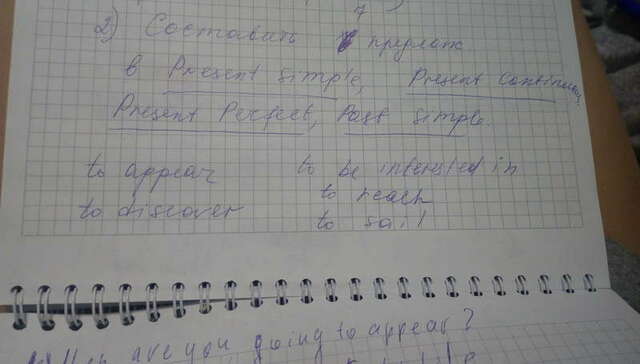 7
2) Составить 7 предлож
в Present simple, Present Continuous,
Present Perfect, Past simple.
to appear to be interested in
to reach
to discover
to sail
When are you going to appear?